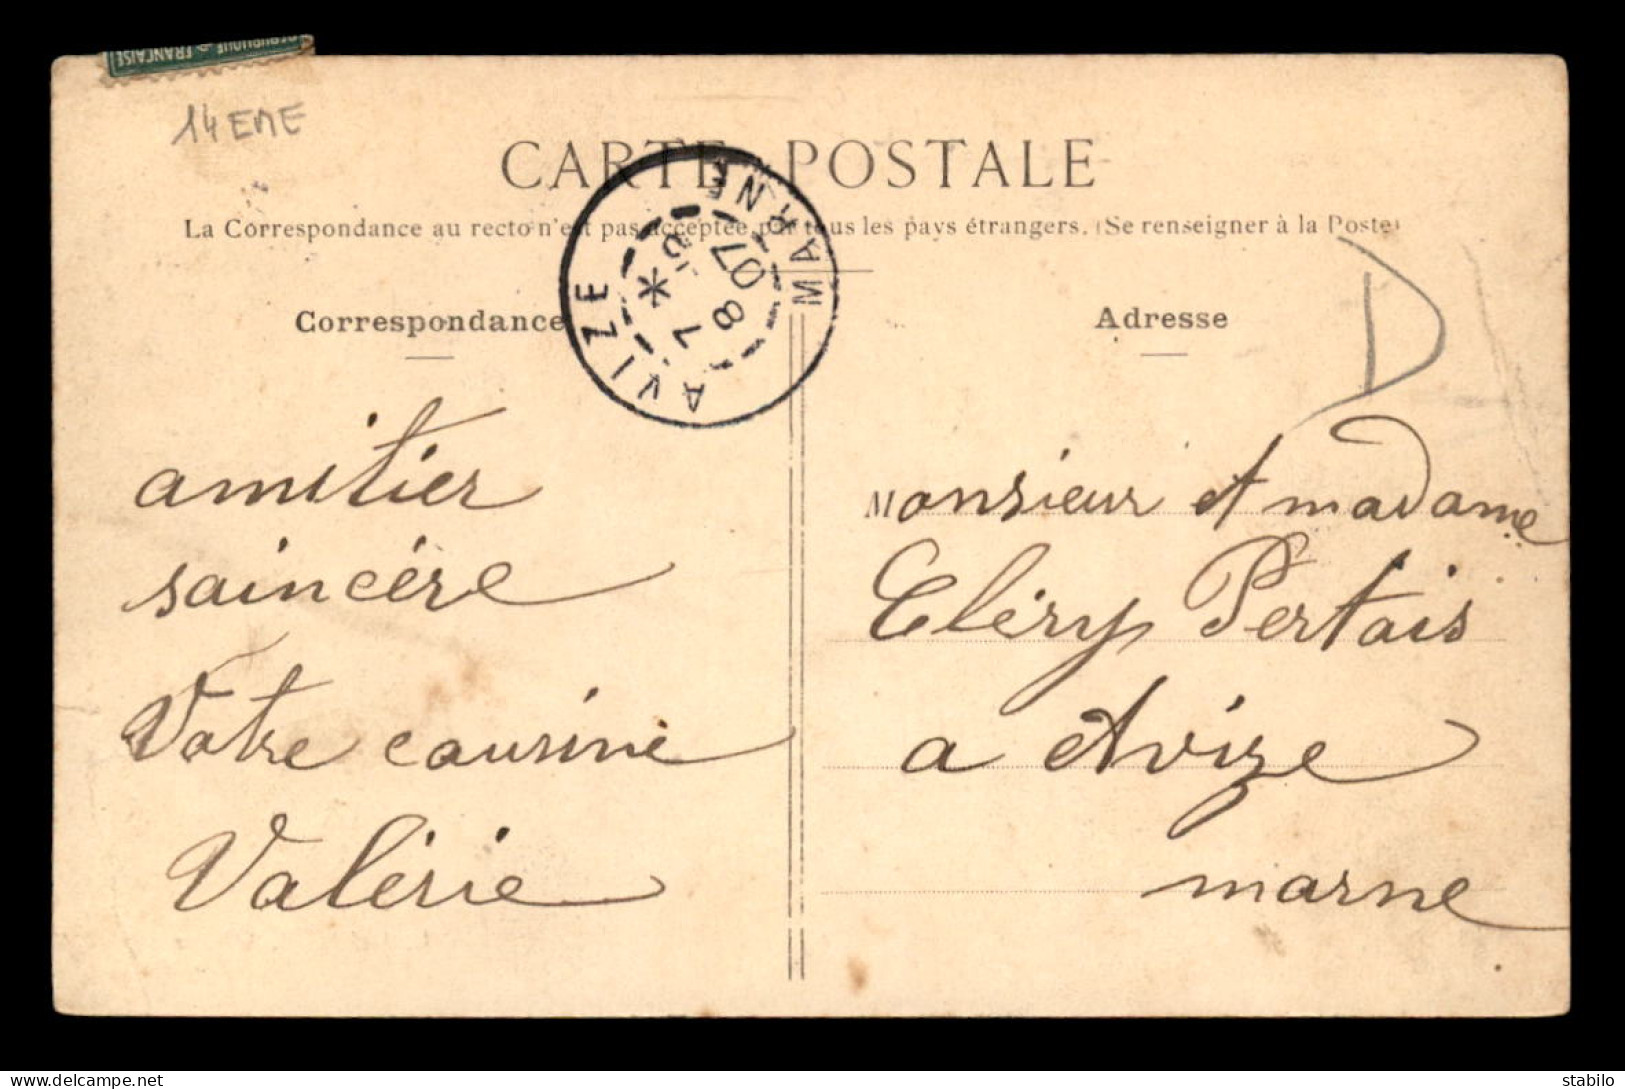 REPUBLIQUE FRANCAISE
14 EME
CARTE POSTALE
La Correspondance au recto n'est pas acceptée par tous les pays étrangers. (Se renseigner à la Poste)
AVIZE MARNE
7 8 07
Correspondance
Adresse
D
amitier
saincére
Votre cousine
Valérie
Monsieur et madame
Cléry Pertais
a Avize
marne
stabilo